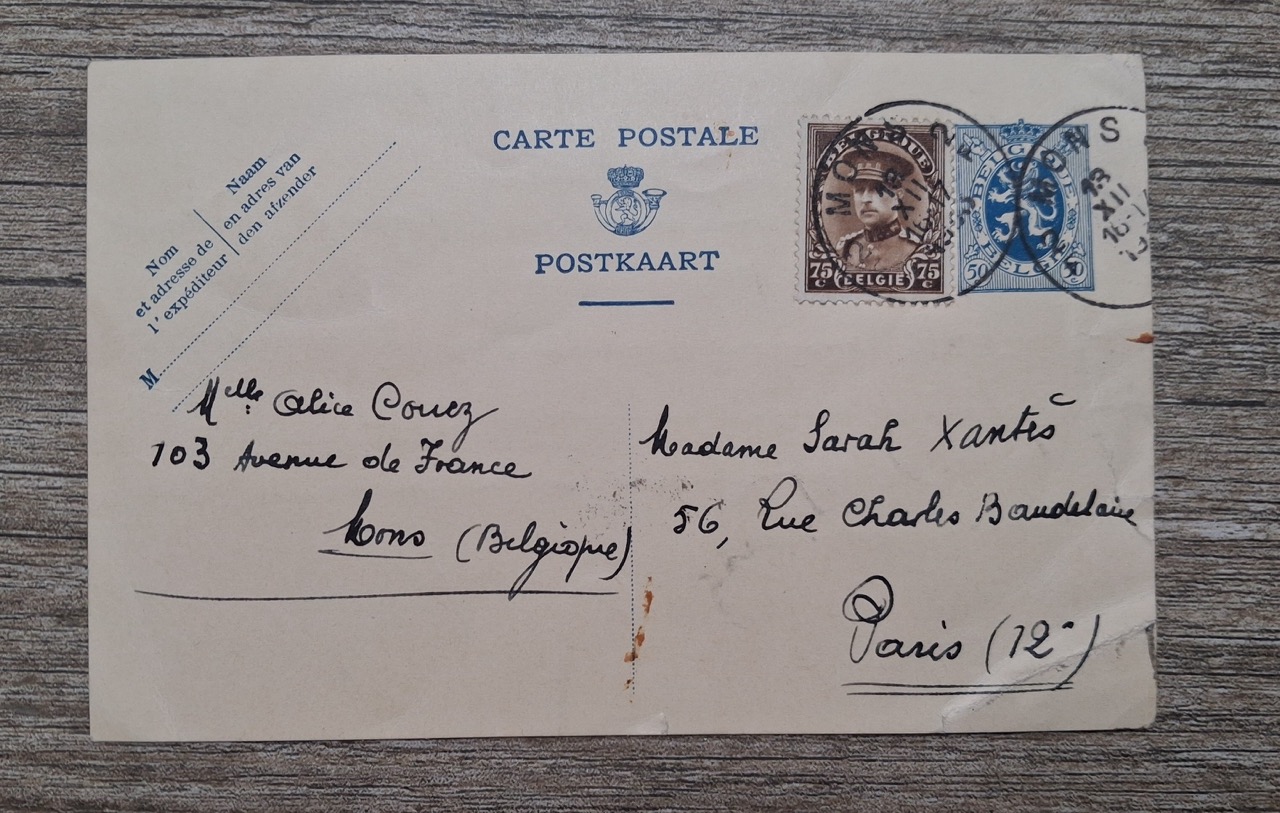 CARTE POSTALE
POSTKAART
Nom
et adresse de
l'expéditeur
Naam
en adres van
den afzender
M
BELGIQUE
75 c BELGIE 75 c
BELGIE
50 50
MONS 2
18
XII
16-17
MONS
18
XII
Mlle Alice Couez
103 Avenue de France
Mons (Belgique)
Madame Sarah Xantès
56, Rue Charles Baudelaire
Paris (12e)